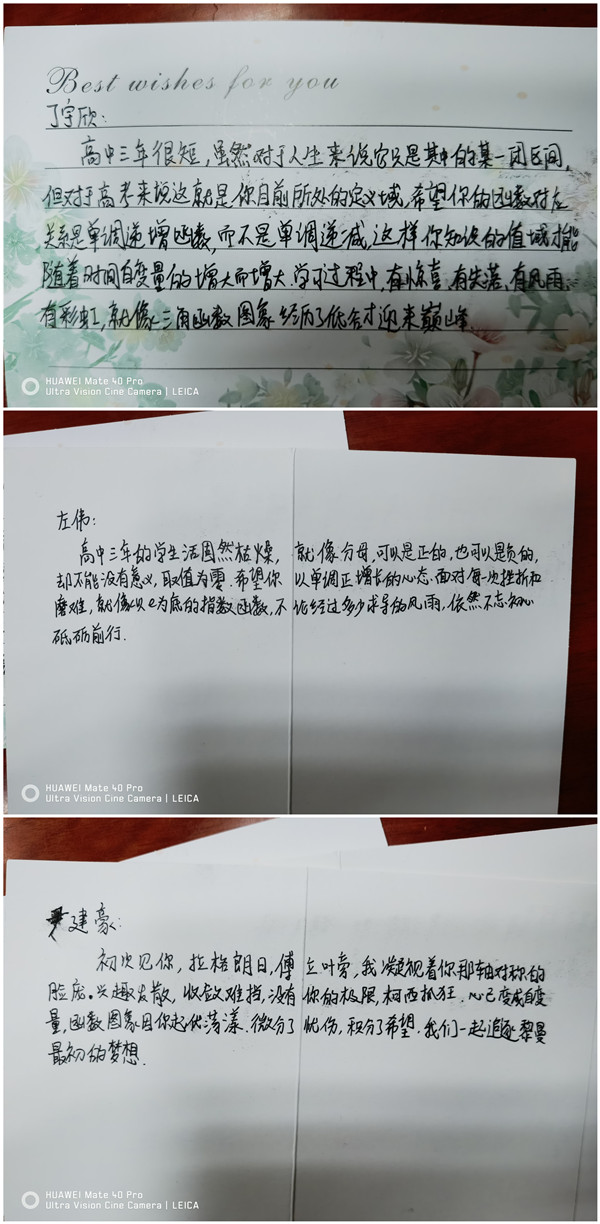 Best wishes for you
丁宇欣:
高中三年很短,虽然对于人生来说它只是其中的某一闭区间,
但对于高考来说这就是你目前所处的定义域,希望你的函数对应
关系是单调递增函数,而不是单调递减,这样你知识的值域才能
随着时间自变量的增大而增大.学习过程中,有惊喜,有失落,有风雨,
有彩虹,就像三角函数图象经历了低谷才迎来巅峰.
HUAWEI Mate 40 Pro
Ultra Vision Cine Camera | LEICA
左伟:
高中三年的学生活固然枯燥,就像分母,可以是正的,也可以是负的,
却不能没有意义,取值为零.希望你以单调正增长的心态.面对每一次挫折和
磨难,就像以e为底的指数函数,不论经过多少求导的风雨,依然不忘初心
砥砺前行.
HUAWEI Mate 40 Pro
Ultra Vision Cine Camera | LEICA
建豪:
初次见你,拉格朗日,傅立叶旁,我凝视着你那轴对称的
脸庞.兴趣发散,收敛难挡,没有你的极限,柯西抓狂.心已变成自变
量,函数图象因你起伏荡漾.微分了忧伤,积分了希望.我们一起追逐黎曼
最初的梦想.
HUAWEI Mate 40 Pro
Ultra Vision Cine Camera | LEICA